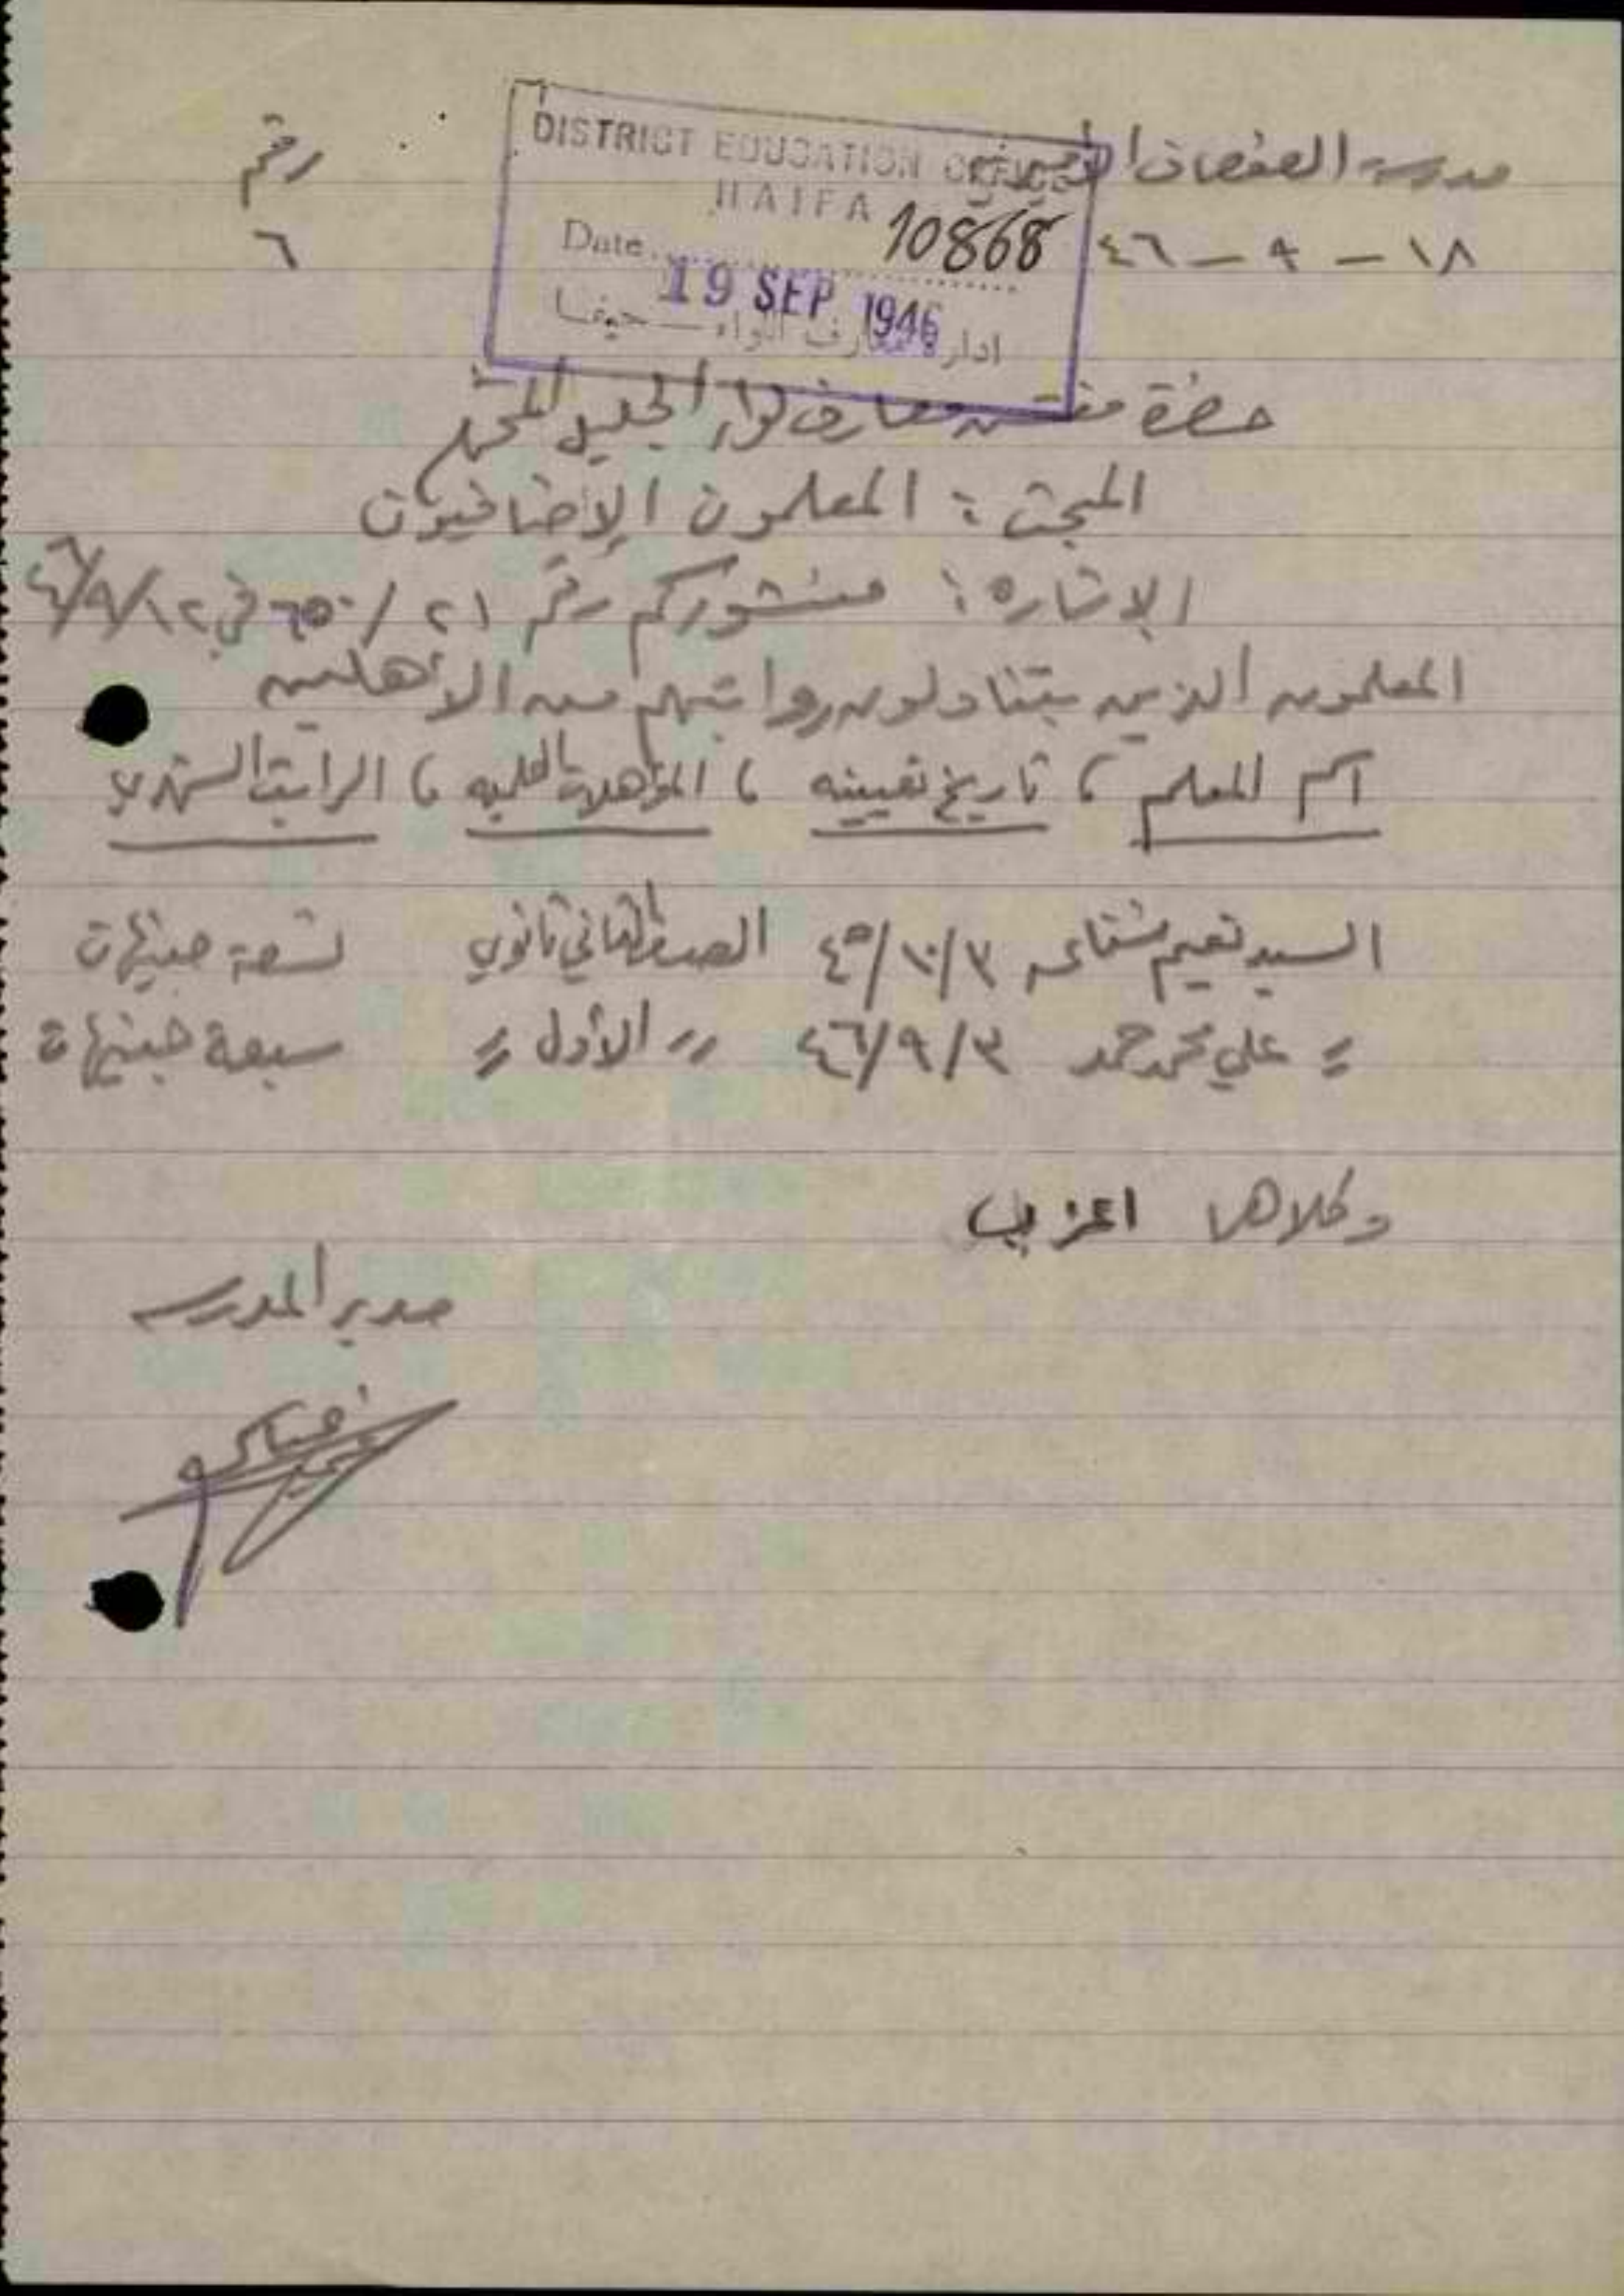 مدرسة الصفصاف الاميرية
رقم
١٨ - ٩ - ٤٦
٦
DISTRICT EDUCATION OFFICE
HAIFA
10868
Date
19 SEP 1946
ادارة معارف اللواء - حيفا
حضرة مفتش معارف لواء الجليل المحترم
المبحث : المعلمون الإضافيون
الاشاره : منشوركم رقم ٢١ / ٦٥٠ في ١٢/٩/٤٦
المعلمون الذين يتناولون رواتبهم من الأهلين
اسم المعلم ، تاريخ تعيينه ، المؤهلات العلميه ، الراتب الشهري
السيد نعيم ٣/١٠/٤٥ الصف الثاني ثانوي تسعة جنيهات
〃 علي محمد حمد ٣/٩/٤٦ 〃 الأول 〃 سبعة جنيهات
وكلاهما اعزب
مدير المدرسه